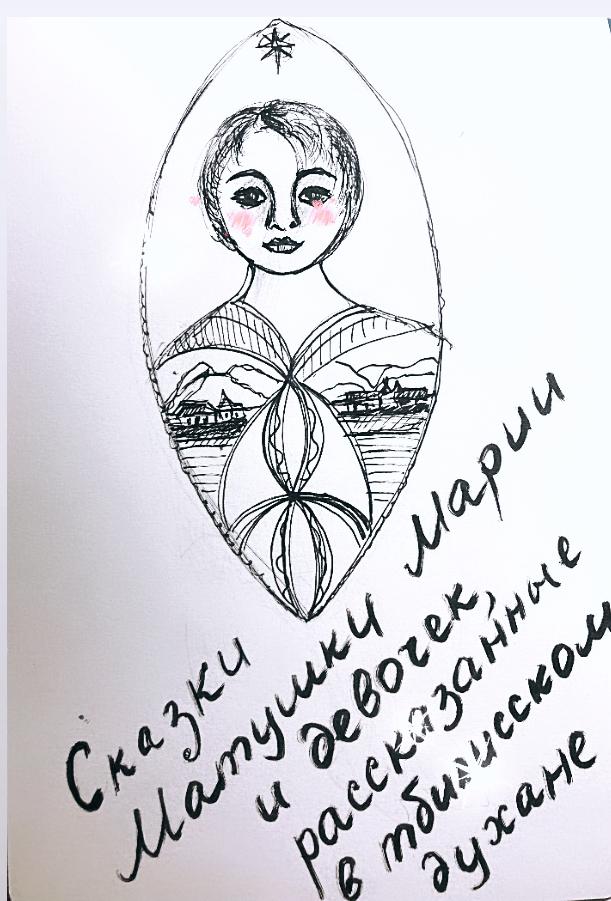 Сказки
Матушки Марии
и девочек,
рассказанные
в тбилисском
духане